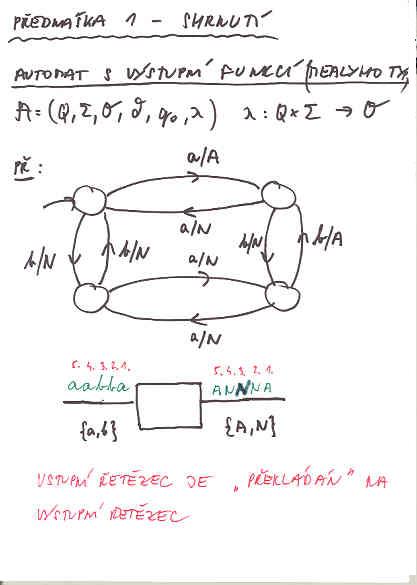 PŘEDNÁŠKA 1 - SHRNUTÍ
AUTOMAT S VÝSTUPNÍ FUNKCÍ (MEALYHO TYP)
A = (Q, Σ, O, δ, q₀, λ) λ : Q × Σ → O
PŘ :
a/A
a/N
b/N
b/N
b/N
b/A
a/N
a/N
5. 4. 3. 2. 1.
5. 4. 3. 2. 1.
aabba
ANNNA
{a,b}
{A,N}
VSTUPNÍ ŘETĚZEC JE „PŘEKLÁDÁN" NA
VÝSTUPNÍ ŘETĚZEC